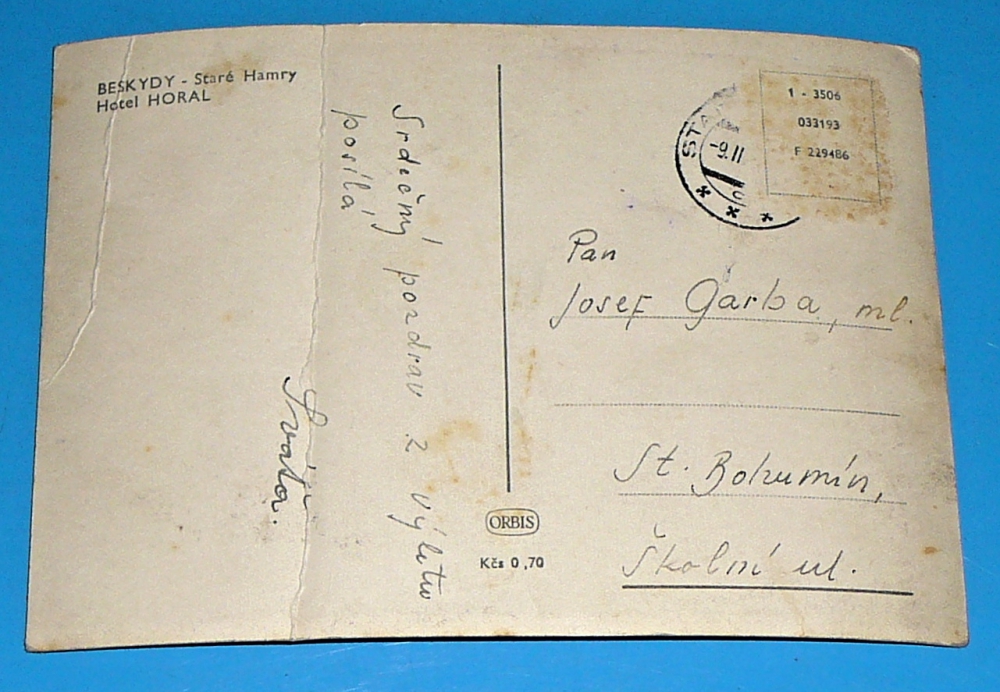 BESKYDY - Staré Hamry
Hotel HORAL
Srdečný pozdrav z výletu
posílá
Sváťa.
ORBIS
Kčs 0,70
STA
-9.II
1 - 3506
033193
F 229486
Pan
Josef Garba, ml.
St. Bohumín,
Školní ul.